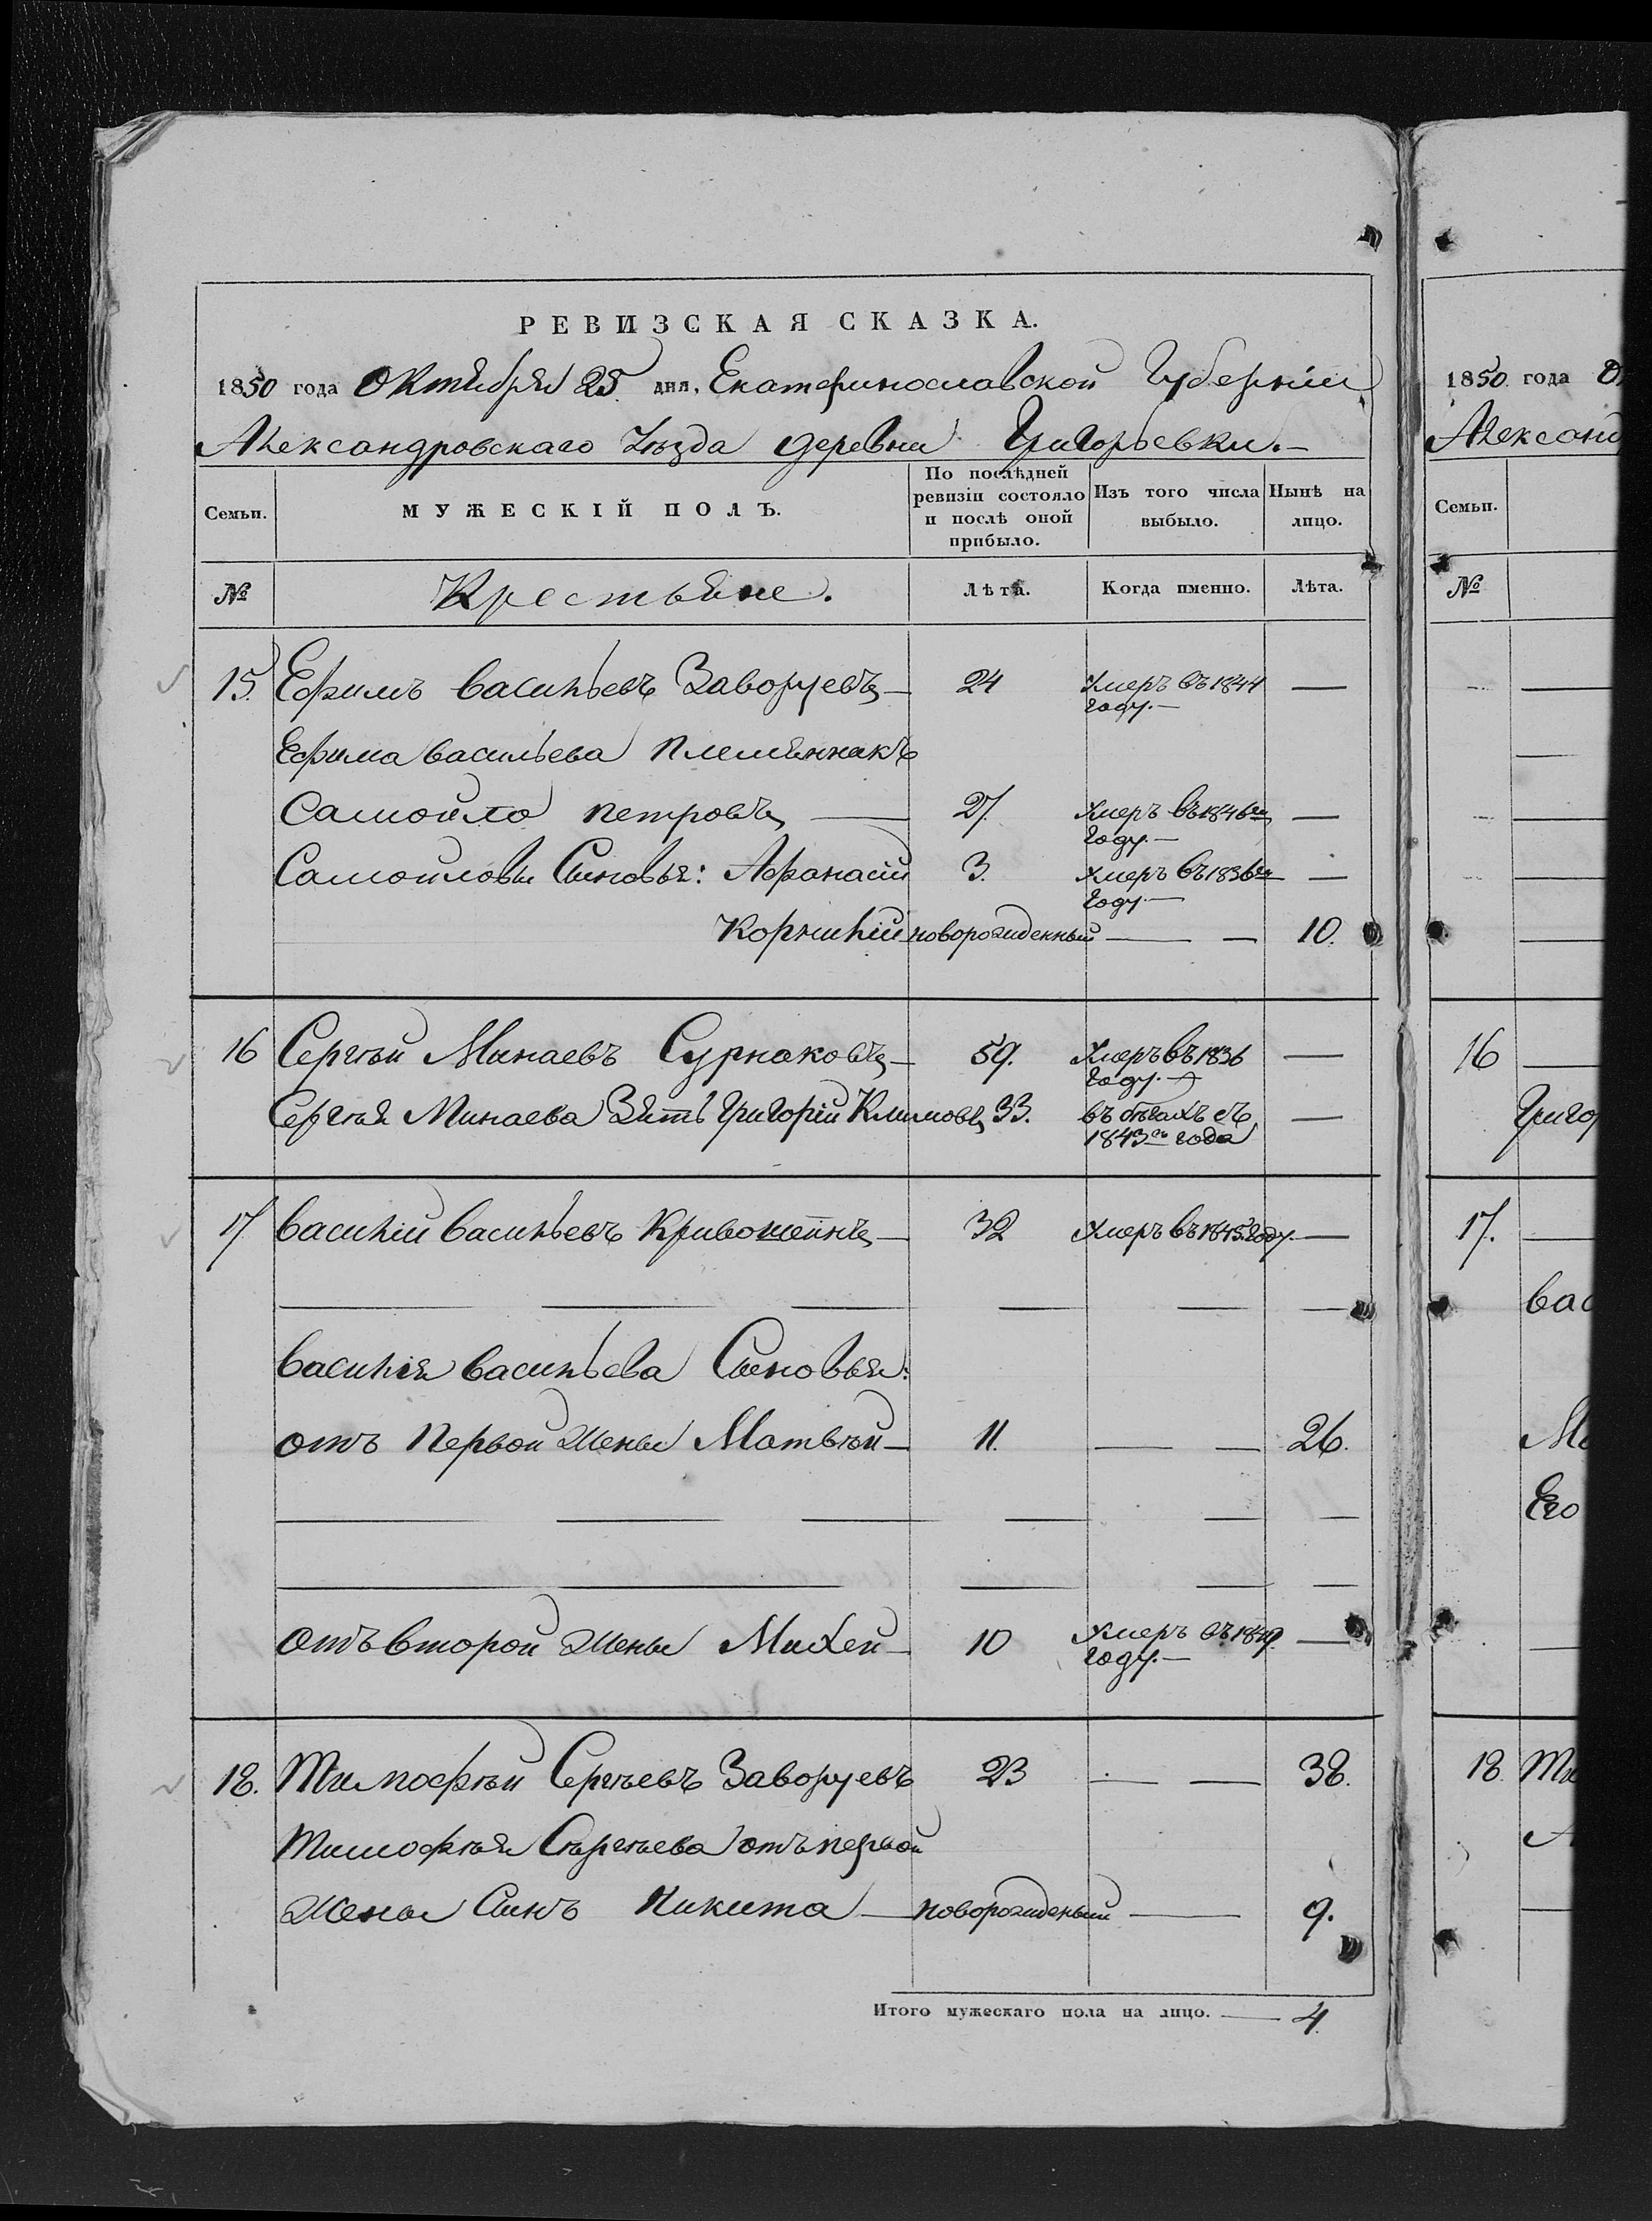 РЕВИЗСКАЯ СКАЗКА.
1850 года Октября 25 дня, Екатеринославской Губерніи
Александровскаго Уѣзда деревни Григорьевки.—
Семьи. МУЖЕСКІЙ ПОЛЪ. По послѣдней ревизіи состояло и послѣ оной прибыло. Изъ того числа выбыло. Нынѣ на лицо.
№ Крестьяне. Лѣта. Когда именно. Лѣта.
15. Ефимъ Васильевъ Заворуевъ — 24 Умеръ въ 1844 году.— —
Ефима Васильева племянникъ
Самойло Петровъ — 27. Умеръ въ 1846м году.— —
Самойловы Сыновья: Афанасій 3. Умеръ въ 1836м году.— —
Корнилій новорожденный — — 10.
16 Сергѣй Минаевъ Сурнаковъ — 59. Умеръ въ 1836 году.— —
Сергѣя Минаева Зять Григорій Климовъ 33. въ бѣгахъ съ 1843го года —
17 Василій Васильевъ Кривошеинъ — 32 Умеръ въ 1845 году.—
Василія Васильева Сыновья:
отъ Первой Жены Матвѣй — 11. — — 26.
отъ второй Жены Михей — 10 Умеръ въ 1849. году.— —
18. Тимофѣй Сергѣевъ Заворуевъ 23 — — 38.
Тимофѣя Сергѣева отъ первой
Жены Сынъ Никита — новорожденный — 9.
Итого мужескаго пола на лицо. — 4.
1850 года О
Александ
Семьи.
№
16
Григор
17.
Вас
Ма
Его
18. Ти